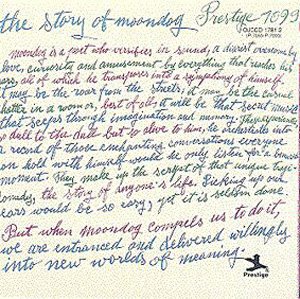 the story of moondog Prestige 7099
OJCCD 1741 2
(P-7099)
moondog is a poet who versifies in sound, a diarist overcome by
love, curiosity and amusement by everything that reaches his
ears all of which he transposes into a symphony of himself.
it may be the roar from the streets; it may be the casual
chatter in a room or, best of all, it will be that secret music
that seeps through imagination and memory. They are
so dull to the dull but so alive to him, he orchestrates into
a record of those enchanting conversations everyone
can hold with himself would he only listen for a
moment. They make up the script of that unique tragi-
comedy, the story of anyone's life. Picking up our
ears would be so easy; yet it is seldom done.
But when moondog compels us to do it,
we are entranced and delivered willingly
into new worlds of meaning.
Prestige